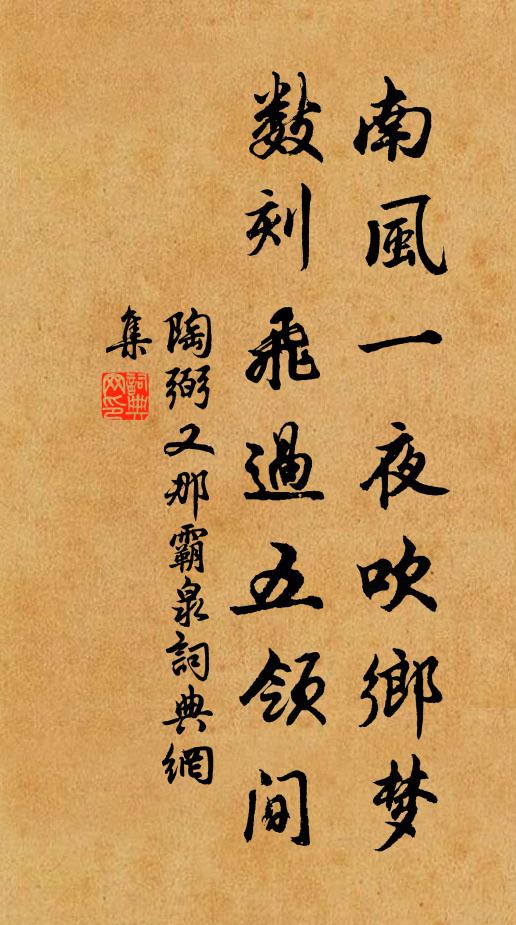 南風一夜吹鄉梦
数刻飛過五領间
陶弼又那霸泉詞典網
集
詞典
网印